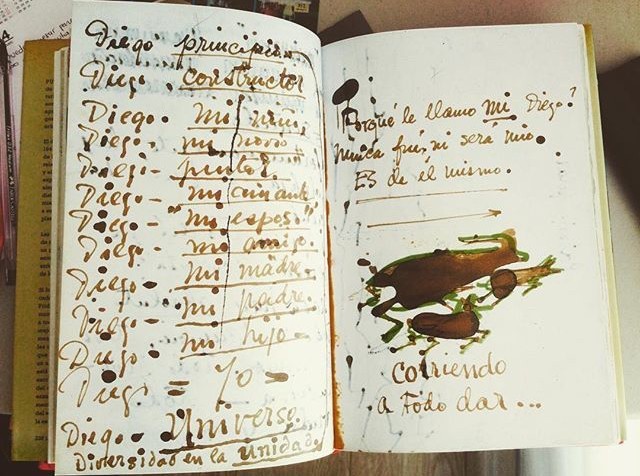 Diego principio
Diego. constructor
Diego. mi niño.
Diego. mi novio.
Diego. pintor.
Diego. mi amante.
Diego. "mi esposo".
Diego. mi amigo.
Diego. mi madre.
Diego. mi padre.
Diego. mi hijo.
Diego = yo =
Diego. Universo.
Diversidad en la unidad.
Porqué le llamo mi Diego?
Nunca fué, ni será mio.
Es de él mismo.
Corriendo
a todo dar...